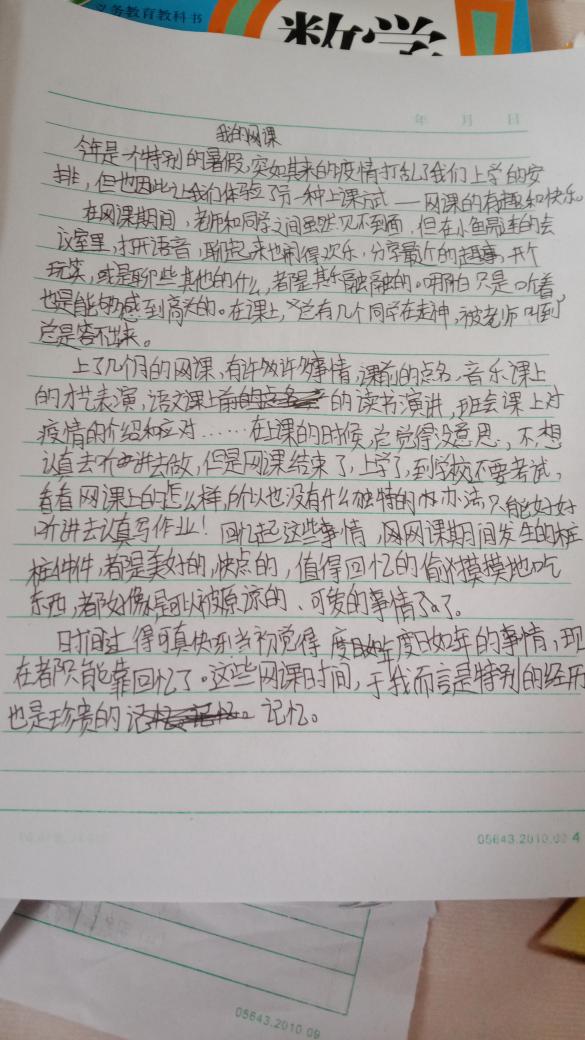 义务教育教科书
数学
年 月 日
我的网课
今年是一个特别的暑假,突如其来的疫情打乱了我们上学的安
排,但也因此让我们体验了另一种上课方式——网课的有趣和快乐。
在网课期间,老师和同学之间虽然见不到面,但在小鱼易连的会
议室里,打开语音,聊起来也闹得欢乐,分享最近的趣事,开个
玩笑,或是聊些其他的什么,都是其乐融融的。哪怕只是听着
也是能够感到高兴的。在课上,总有几个同学在走神,被老师叫到
总是答不出来。
上了几个月的网课,有许多许多事情,课前的点名,音乐课上
的才艺表演,语文课上前的读书演讲,班会课上对
疫情的介绍和应对……在上课的时候,总觉得没意思,不想
认真去听讲去做,但是网课结束了,上学了,到学校还要考试,
看看网课上的怎么样,所以也没有什么独特的办法,只能好好
听讲去认真写作业!回忆起这些事情,网网课期间发生的桩
桩件件,都是美好的,快点的,值得回忆的偷偷摸摸地吃
东西,都好像是可以被原谅的、可爱的事情了。
时间过得可真快东当初觉得度日如年的事情,现
在都只能靠回忆了。这些网课时间,于我而言是特别的经历
也是珍贵的记忆。
05643.2010.09 4
05643.2010.09